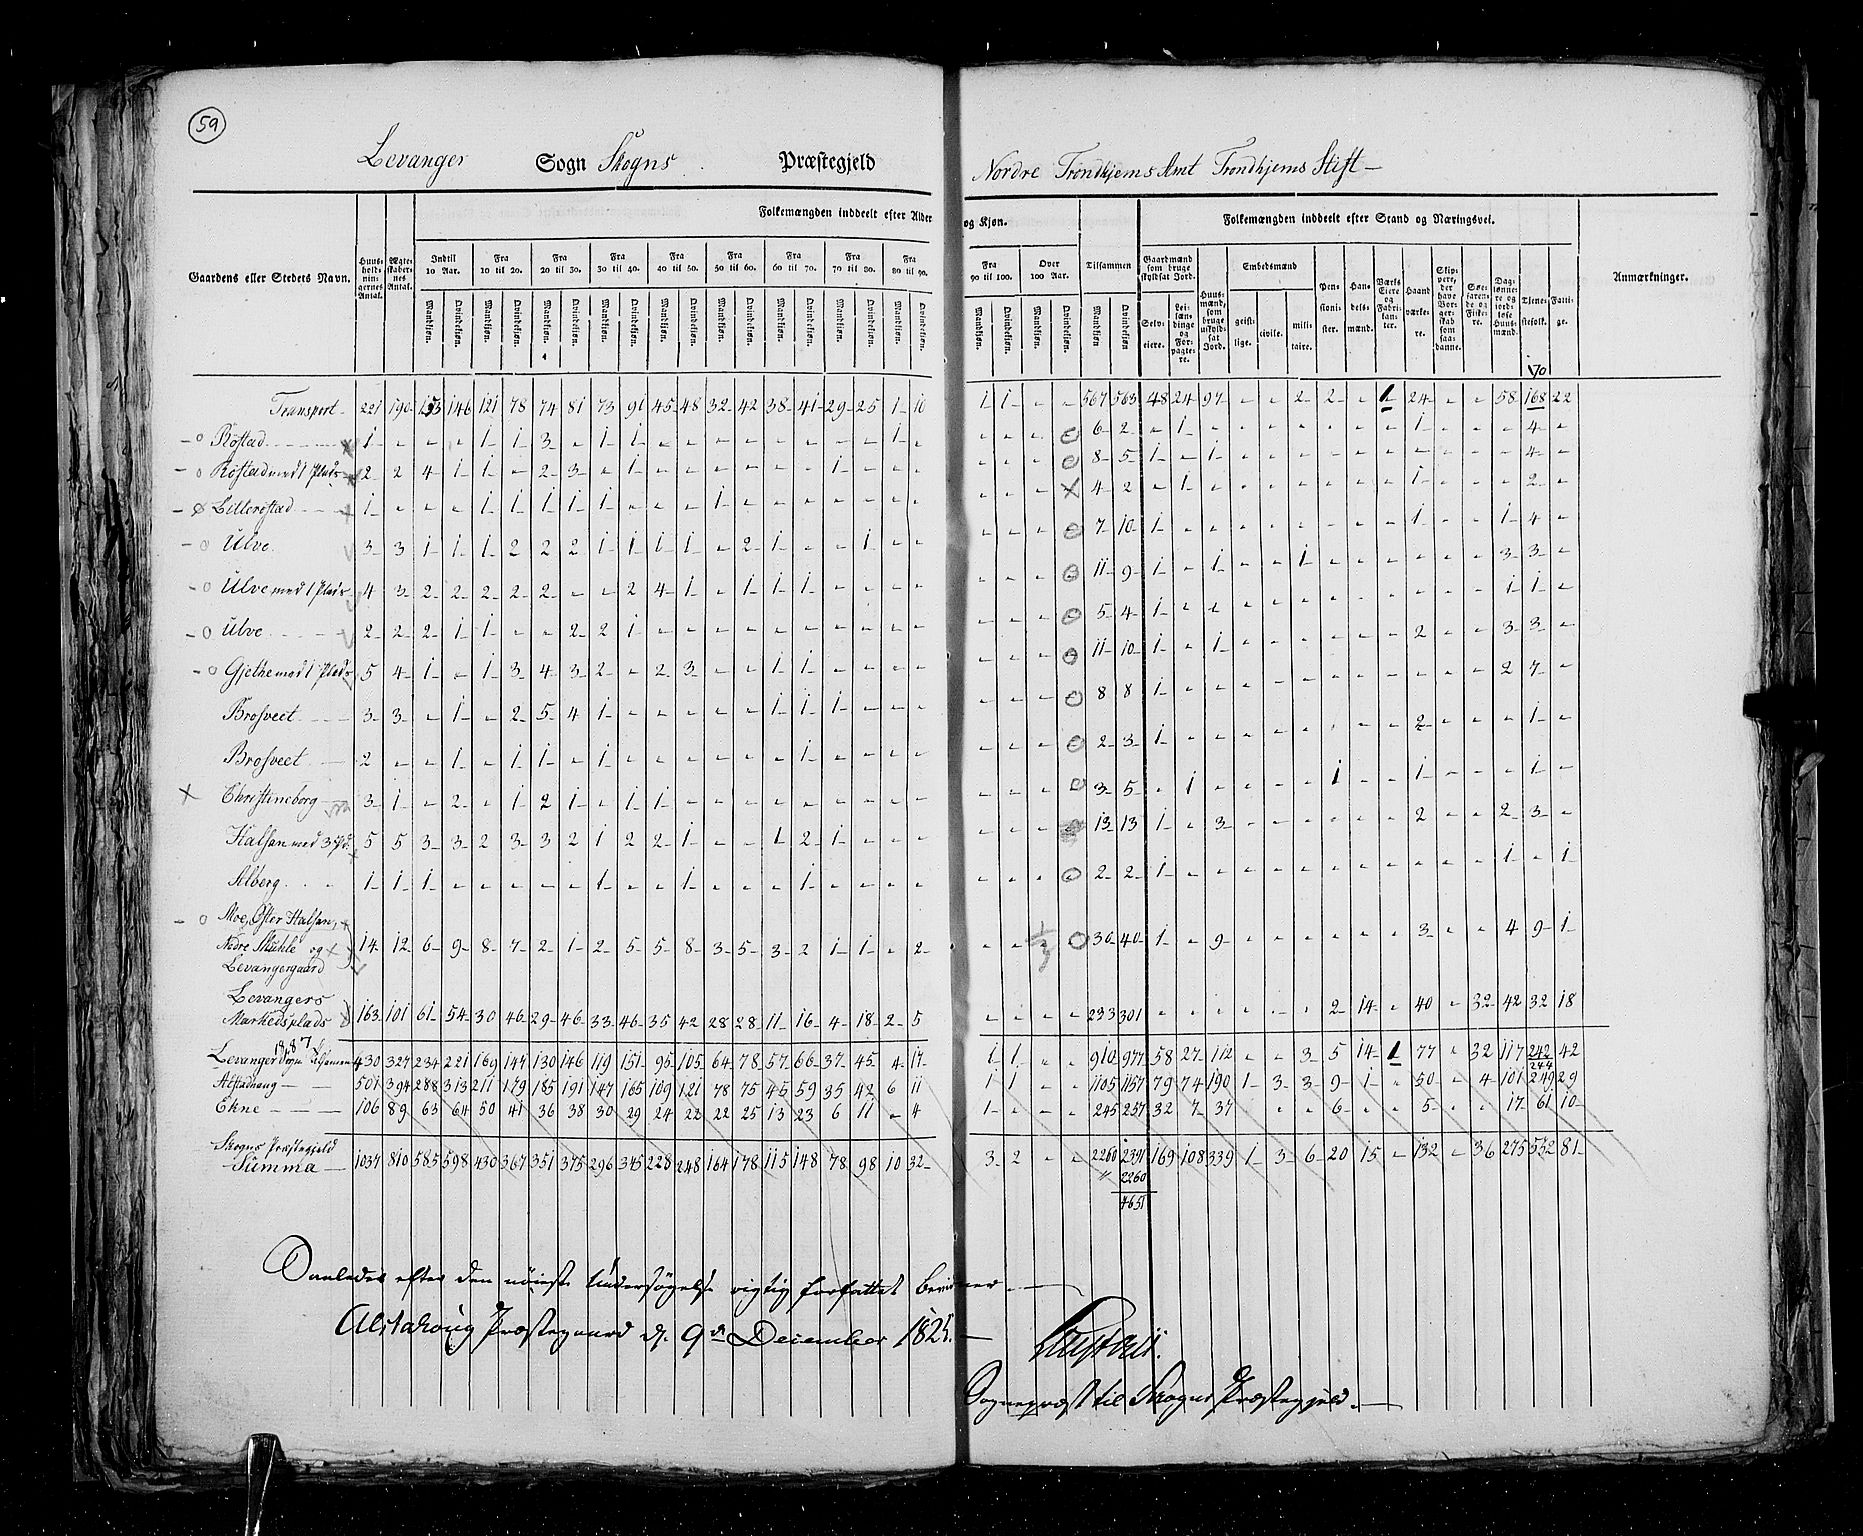 59
Levanger Sogn Skogns Præstegjeld Nordre Trondhjems Amt Trondhjems Stift
Folkemængden inddeelt efter Alder og Kjøn. Folkemængden inddeelt efter Stand og Næringsvei.
Gaardens eller Stedets Navn. Huus-holdnin-gernes Antal. Ægte-skaber-nes Antal. Indtil 10 Aar. Fra 10 til 20. Fra 20 til 30. Fra 30 til 40. Fra 40 til 50. Fra 50 til 60. Fra 60 til 70. Fra 70 til 80. Fra 80 til 90. Fra 90 til 100. Over 100 Aar. Tilsammen Gaardmænd som bruge skyldsat Jord. Huus-mænd, som bruge uskyld-sat Jord. Embedsmænd Pen-sioni-ster. Han-dels-mænd. Værks Eiere og Fabri-kan-ter. Haand-værke-re. Skip-pere, der have Bor-ger-skab som saa-danne. Søe-faren-de og Fiske-re. Dag-lønne-re og jord-løse Huus-mænd. Tjene-stefolk. Fatti-ge. Anmærkninger.
Mandkjøn. Qvindekjøn. Mandkjøn. Qvindekjøn. Mandkjøn. Qvindekjøn. Mandkjøn. Qvindekjøn. Mandkjøn. Qvindekjøn. Mandkjøn. Qvindekjøn. Mandkjøn. Qvindekjøn. Mandkjøn. Qvindekjøn. Mandkjøn. Qvindekjøn. Mandkjøn. Qvindekjøn. Mandkjøn. Qvindekjøn. Mandkjøn Qvindekjøn Selv-eiere. Lei-læn-dinge og For-pagte-re. geist-lige. civile. mili-taire.
170
Transport 221 190 153 146 121 78 74 81 73 91 45 48 32 42 38 41 29 25 1 10 1 1 " " 567 563 48 24 97 " " 2 2 " 1 24 " " 58 168 22
Røstad 1 " " " 1 1 3 " 1 1 " " " " " " " " 1 " " " " " 6 2 " 1 " " " " " " " 1 " " " 4 "
Røstad med 1 Plads 2 2 4 1 1 " 2 3 " 1 " " " " " " 1 " " " " " " " 8 5 1 " 1 " " " " " " " " " " 4 "
Litlerøstad 1 " " " 1 1 1 1 1 " " " 1 " " " " " " " " " " 4 2 " 1 " " " " " " " 1 " " " 2 "
Ulve 3 3 1 1 1 2 2 2 1 1 1 1 " 2 1 " " 1 " " " " " 7 10 1 " " " " " " " " 1 " " 1 4 "
Ulve med 1 Plads 4 3 2 2 2 2 2 " " 2 4 1 " 1 1 1 " " " " " " " 11 9 1 " 1 " " 1 " " " " " " 3 3 "
Ulve 2 2 2 1 1 " " 2 2 1 " " " " " " " " " " " " " 5 4 1 " " " " " " " " " " " 1 1 "
Gjethe med 1 Plads 5 4 1 " 1 3 4 3 2 " 2 3 " " 1 1 " " " " " " " 11 10 1 " 1 " " " " " " 2 " " 3 3 "
Brosveet 3 3 " 1 " 2 5 4 1 " " " " " 1 1 1 " " " " " " 8 8 1 " " " " " " " " " " " 2 7 "
Brosveet 2 " " 1 " 1 1 " 1 " " " " " " 1 " " " " " " " 2 3 1 " " " " " " " " 2 " " " 1 "
Christineborg 3 1 " 2 " 1 2 1 " 1 1 " " " " " " " " " " " " 3 5 " 1 " " " " 1 " " 1 " " " 1 "
Halsan med 3 Pl. 5 5 3 3 2 3 3 2 1 2 2 1 " " 1 2 1 " " " " " " 13 13 1 " 3 " " " " " " 2 " " 2 3 "
Alberg 1 1 1 " " " " " 1 " " 1 " " " 1 " " " " " " " 2 2 1 " " " " " " " " " " " 1 " 1
Moe, Øster Halsan,
Nedre Skuhle og 14 12 6 9 8 7 2 1 2 5 5 8 3 5 3 2 1 1 " 2 " " " 30 40 1 " 9 " " " " " " 3 " " 4 9 1
Levangergaard
Levangers
Markedsplads 163 101 61 54 30 46 29 46 33 46 35 42 28 28 11 16 4 18 2 5 " " " " 233 301 " " " " " " 2 14 " 40 " 32 42 32 18
1887
Levanger Sogn tilsammen 430 327 234 221 169 147 130 146 119 151 95 105 64 78 57 66 37 45 4 17 1 1 " " 910 977 58 27 112 " " 3 5 14 1 77 " 32 117 242 42
244
Alstadhaug 501 394 288 313 211 179 185 191 147 165 109 121 78 75 45 59 35 42 6 11 1 1 " " 1105 1157 79 74 190 1 3 3 9 1 " 50 " 4 101 249 29
Ekne 106 89 63 64 50 41 36 38 30 29 24 22 22 25 13 23 6 11 " 4 1 " " " 245 257 32 7 37 " " " 6 " " 5 " " 17 61 10
Skogns Præstegjeld
Summa 1037 810 585 598 430 367 351 375 296 345 228 248 164 178 115 148 78 98 10 32 3 2 " " 2260 2391 169 108 339 1 3 6 20 15 " 132 " 36 275 552 81
2260
4651
Saaledes efter den nøieste Undersøgelse rigtig forfattet bevidner
Alstahoug Præstegaard d. 9de December 1825.
Sognepræst til Skogns Præstegjeld.